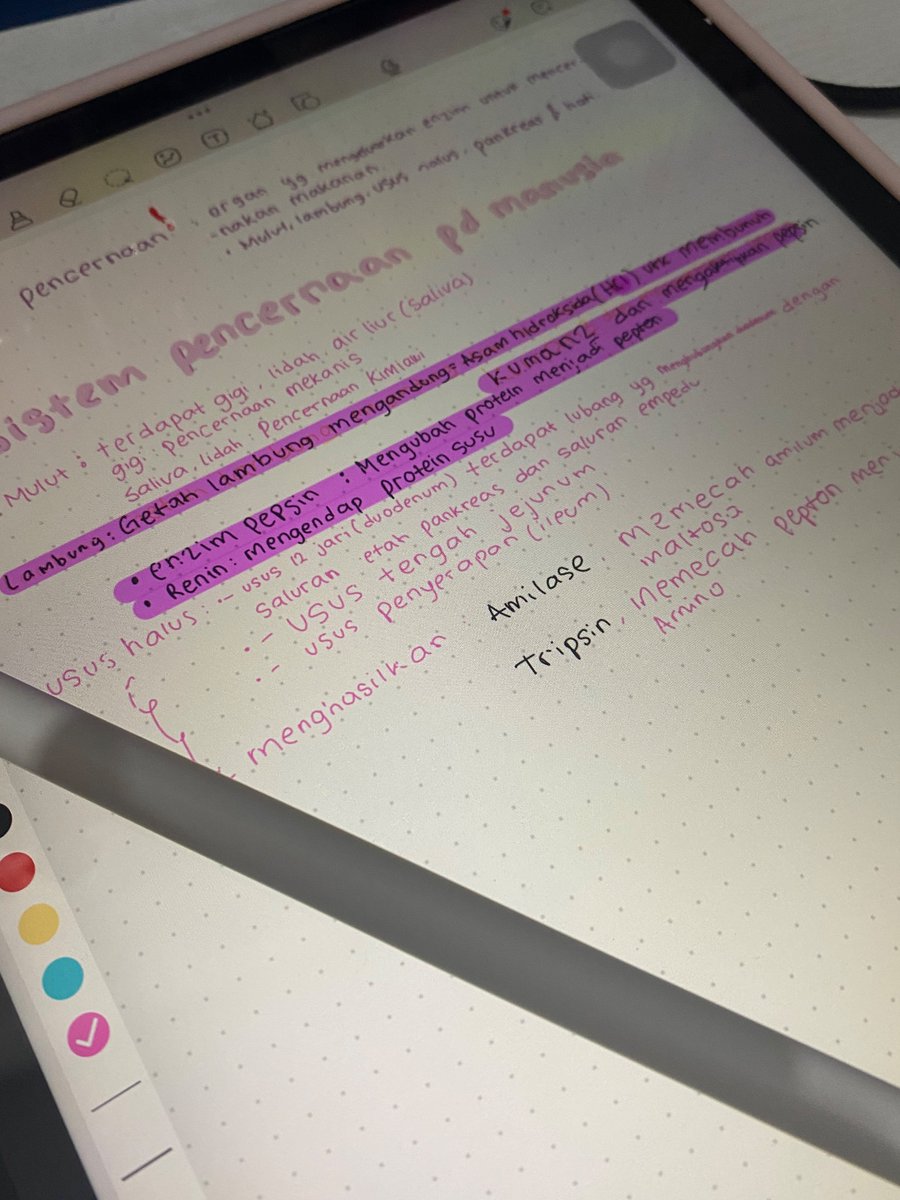 pencernaan! : organ yg mengeluarkan enzim untuk mencer
-nakan makanan.
• Mulut, lambung, usus halus, pankreas & hati
sistem pencernaan pd manusia
Mulut : terdapat gigi, lidah, air liur (saliva)
gigi : pencernaan mekanis
Saliva, lidah : Pencernaan Kimiawi
Lambung : Getah lambung mengandung : Asam hidroksida (HCl) unk membunuh
kuman2 dan mengaktifkan pepsin
• enzim pepsin : Mengubah protein menjadi pepton
• Renin : mengendap protein susu
usus halus : - usus 12 jari (duodenum) terdapat lubang yg menghubungkan duodenum dengan
saluran etah pankreas dan saluran empedu
- usus tengah jejunum
- usus penyerapan (ileum)
menghasilkan : Amilase : memecah amilum menjadi
maltosa
Tripsin, memecah pepton menj
Amino